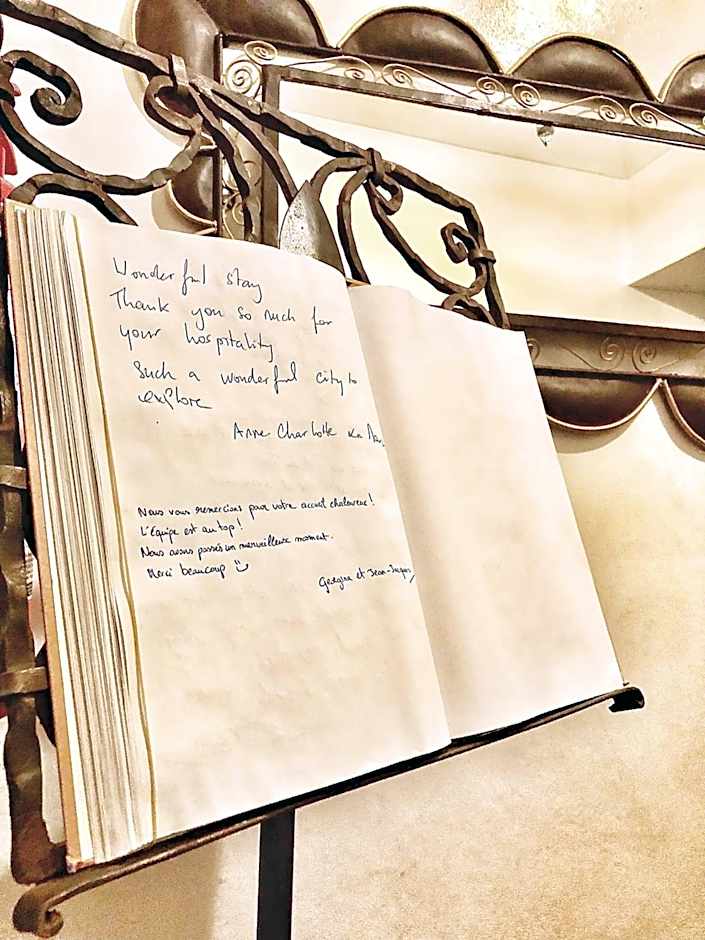 Wonderful stay
Thank you so much for
your hospitality
Such a wonderful city to
explore
Anne Charlotte
Nous vous remercions pour votre accueil chaleureux !
L'Équipe est au top !
Nous avons passés un merveilleux moment.
Merci beaucoup
et Jean-Jacques